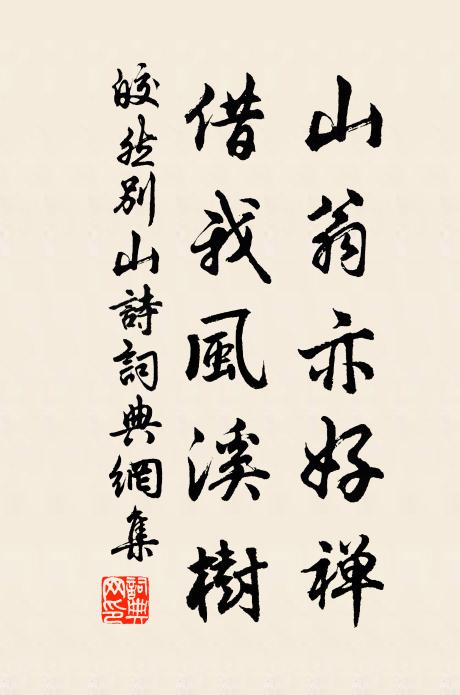 山翁亦好禅
借我風溪樹
皎然別山詩詞典網集
詞典網印